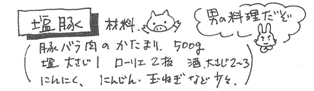 塩豚 材料
男の料理だぞ
豚バラ肉のかたまり 500g
塩 大さじ1 ローリエ2枚 酒、大さじ2~3
にんにく、にんじん・玉ねぎなど少々